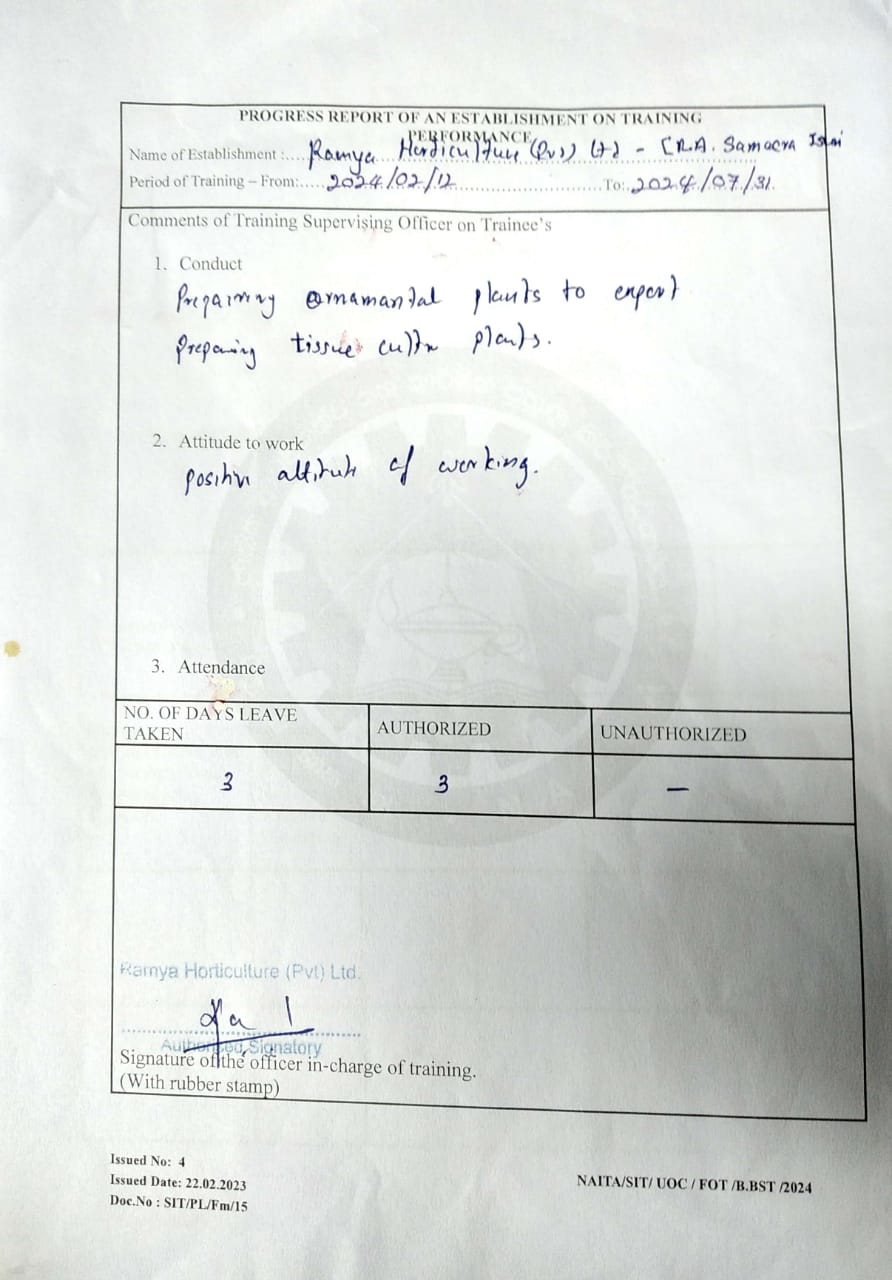 PROGRESS REPORT OF AN ESTABLISHMENT ON TRAINING
PERFORMANCE
Name of Establishment :.... Ramya Horticulture (Pvt) Ltd - (R.A. Samaera
Period of Training – From:..... 2024/02/12 ............................To: 2024/07/31.
Comments of Training Supervising Officer on Trainee's
1. Conduct
Prepairing ornamantal plants to export
preparing tissue cultre plants.
2. Attitude to work
positive attitude of working.
3. Attendance
NO. OF DAYS LEAVE
TAKEN
AUTHORIZED
UNAUTHORIZED
3
3
–
Ramya Horticulture (Pvt) Ltd.
Authorised Signatory
Signature of the officer in-charge of training.
(With rubber stamp)
Issued No: 4
Issued Date: 22.02.2023
Doc.No : SIT/PL/Fm/15
NAITA/SIT/ UOC / FOT /B.BST /2024